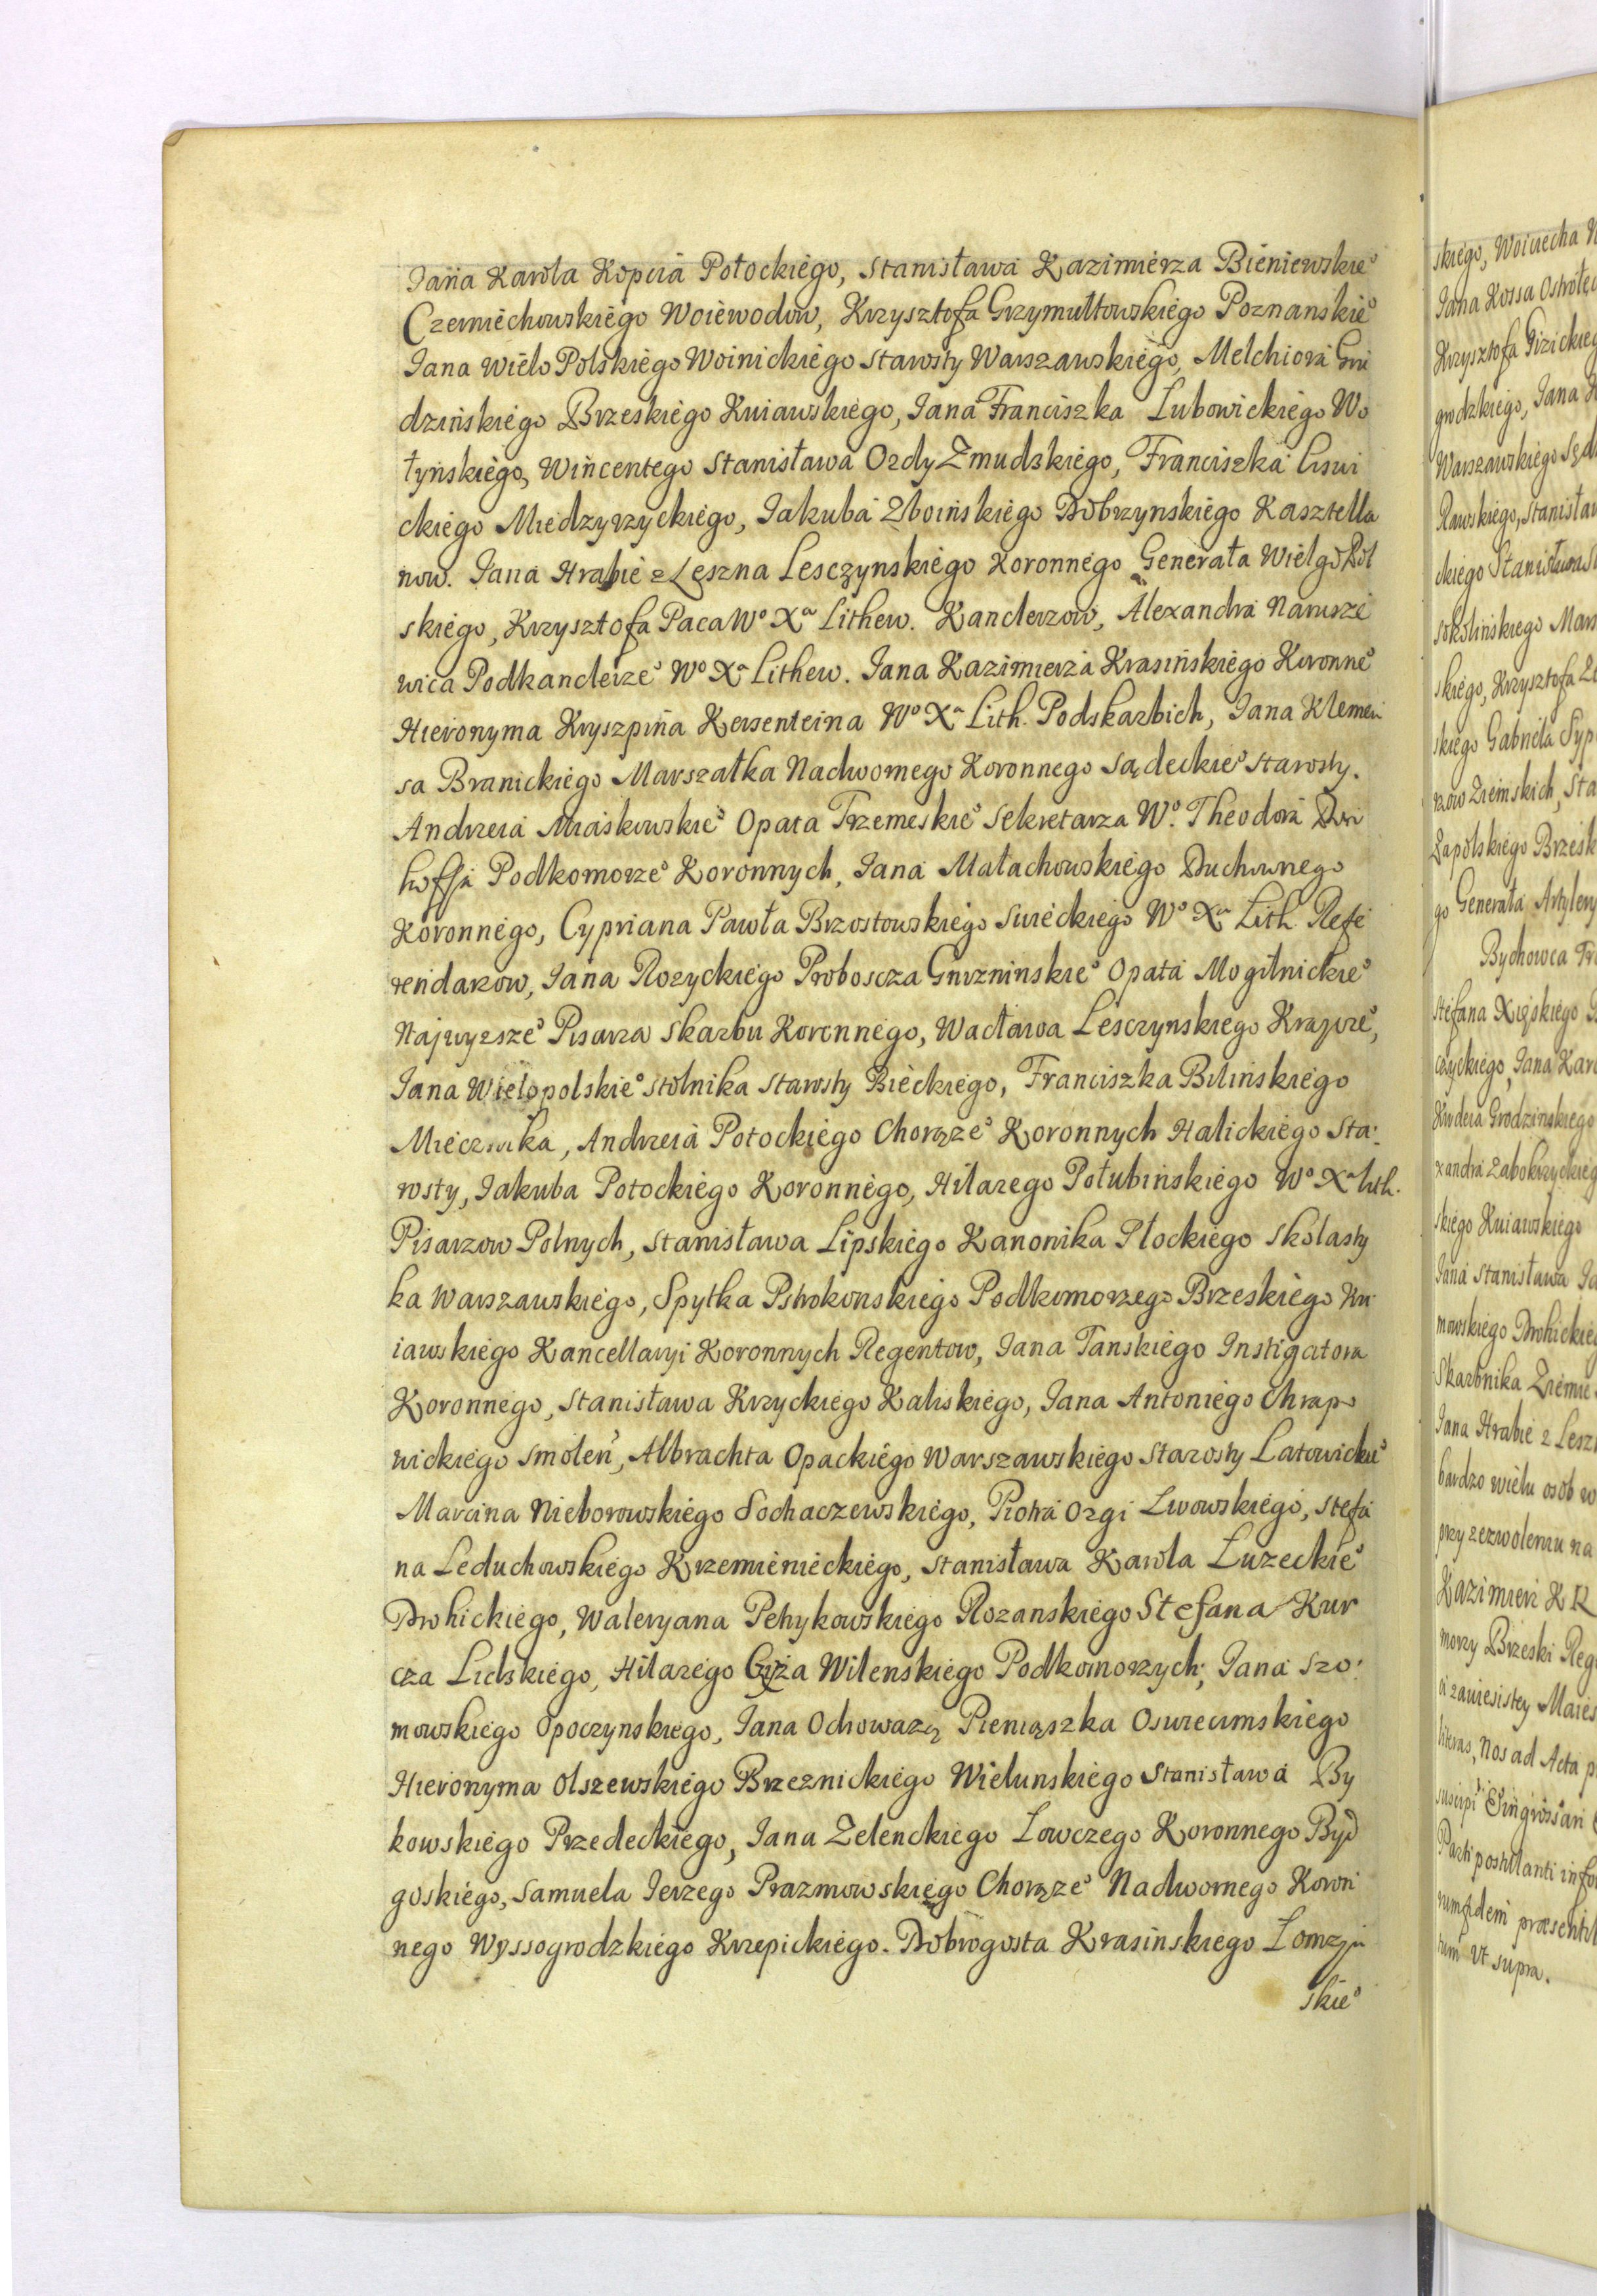 Jana Karola Kopcia Połockiégo, Stanisława Kazimiérza Biéniewskieº
Czerniéchowskiégo Woiéwodow, Krzysztofa Grzymułtowskiégo Poznanskiéº
Jana Wiélo Polskiégo Woinickiégo Starosty Warszawskiégo, Melchiora Gru
dzińskiégo Brzeskiégo Kuiawskiégo, Jana Franciszka Lubowickiégo Wo
łyńskiégo, Wincentego Stanisława Ordy Zmudzkiégo, Franciszka Liswi
ckiégo Miedzyrzyckiégo, Jakuba Zboińskiégo Dobrzynskiégo Kasztella
now. Jana Hrabie z Leszna Lesczynskiégo Koronnégo Generała Wielgo Pol
skiégo, Krzysztofa Paca Wº Xª Lithew. Kanclerzow, Alexandra Narusze
wica Podkanclerzeº Wº Xª Lithew. Jana Kazimierza Krasińskiégo Koronneº
Hieronyma Kryszpina Kersenteina Wº Xª Lith. Podskarbich, Jana Klemen
sa Branickiégo Marszałka Nadwornego Koronnego Sądeckieº Starosty.
Andrzeia Miaskowskieº Opata Trzemeskieº Sekretarza Wº. Theodora Den
hoffa Podkomorzeº Koronnych, Jana Małachowskiégo Duchownego
Koronnégo, Cypriana Pawła Brzostowskiégo Swiéckiégo Wº Xª Lith. Refe
rendarzow, Jana Rozyckiégo Proboscza Gnieznińskieº Opata Mogilnickieº
Najwyzszeº Pisarza Skarbu Koronnégo, Wacława Lesczynskiego Krajczeº,
Jana Wielopolskieº Stolnika Starosty Biéckiégo, Franciszka Bilińskiégo
Miécznika, Andrzeia Potockiégo Chorązeº Koronnych Halickiégo Sta:
rosty, Jakuba Potockiégo Koronnégo, Hilarego Połubińskiego Wº Xª Lith.
Pisarzow Polnych, Stanisława Lipskiégo Kanonika Płockiego Skolasty
ka Warszawskiégo, Spytka Pstrokonskiégo Podkomorzego Brzeskiégo Ku
iawskiégo Kancellaryi Koronnych Regentow, Jana Tanskiégo Instigatora
Koronnégo, Stanisława Krzyckiégo Kaliskiégo, Jana Antoniégo Chrapo
wickiégo Smoleń, Albrachta Opackiégo Warszawskiégo Starosty Latowickieº
Marcina Nieborowskiégo Sochaczewskiégo, Piotra Ozgi Lwowskiégo, Stefa
na Leduchowskiégo Krzemiéniéckiégo, Stanisława Karola Łuzeckieº
Drohickiégo, Waleryana Petrykowskiégo Rozanskiégo Stefana Kur
cza Lidzkiégo, Hilarégo Giża Wilenskiégo Podkomorzych; Jana Szo:
mowskiégo Opoczynskiégo, Jana Ochowazą Pieniąszka Oswiecimskiégo
Hieronyma Olszewskiégo Brzeznickiégo Wielunskiégo Stanisława By
kowskiégo Przedeckiégo, Jana Zelenckiégo Łowczego Koronnego Byd
goskiégo, Samuela Jerzego Prazmowskiégo Chorązeº Nadwornego Koron
nego Wyssogrodzkiégo Krzepickiégo. Dobrogosta Krasinskiego Lomzyń
skieº
skiégo, Woiciecha
Jana Kossa
Krzysztofa Gizickieg
grodzkiégo, Jana
Warszawskiégo
Rawskiégo, Stanisław
ckiégo Stanisława
Sokolinskiego Mars
skiego, Krzysztofa
skiégo Gabriela
Ziemskich,
Zapolskiego Brzesk
go Generała Artylery
Bychowca
Stefana Xiąskiégo
czyckiégo, Jana Kar
Grodzinskiego
xandra Zabokrzyckieg
skiégo Kuiawskiégo
Jana Stanisława
mowskiégo Drohickieg
Skarbnika Ziemie
Jana Hrabie z Lesz
bardzo wiélu osób w
przy zezwoleniu na
Kazimierz
morzy Brzeski Reg
zawiesistey Maies
literas, Nos ad Acta
suscepi et Singrossari
Parti postulanti
fidem præsentib
Ut supra.